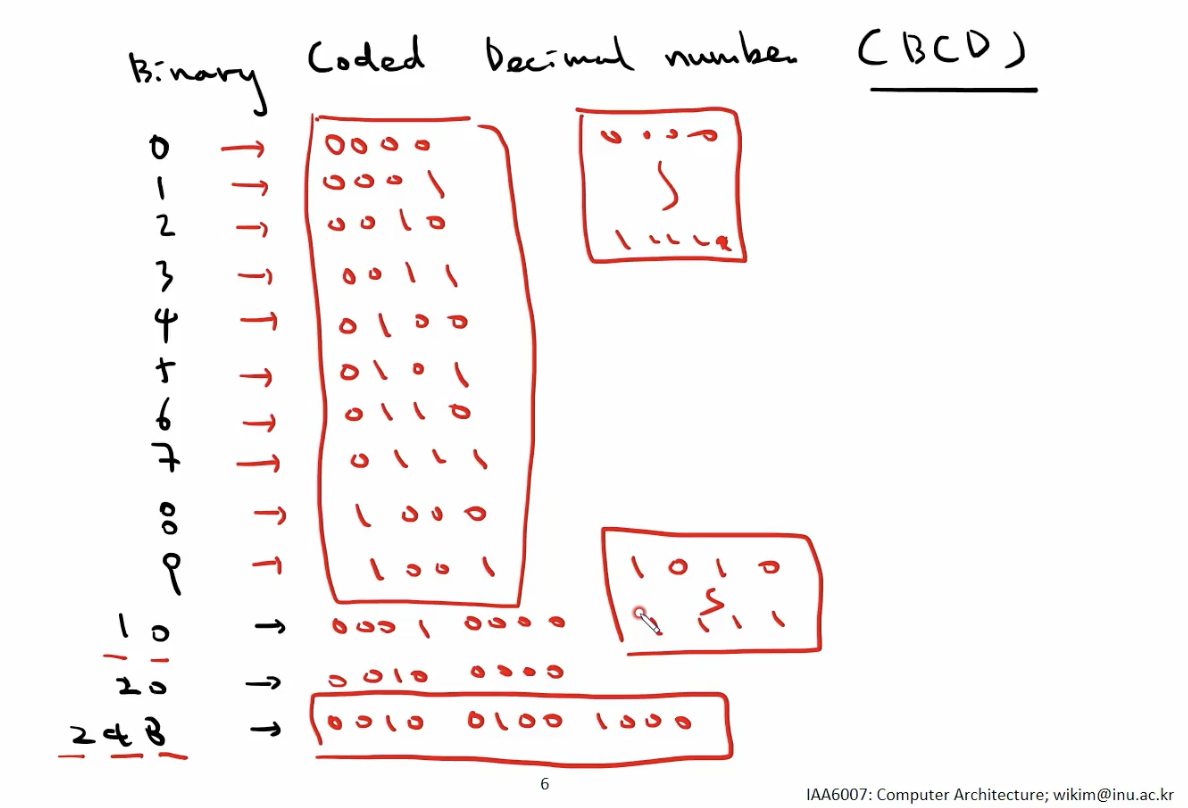 Binary Coded Decimal number (BCD)
0 → 0000
0000
1 → 0001
2 → 0010
1111
3 → 0011
4 → 0100
5 → 0101
6 → 0110
7 → 0111
8 → 1000
9 → 1001
1010
1111
10 → 0001 0000
20 → 0010 0000
248 → 0010 0100 1000
6
IAA6007: Computer Architecture; wikim@inu.ac.kr